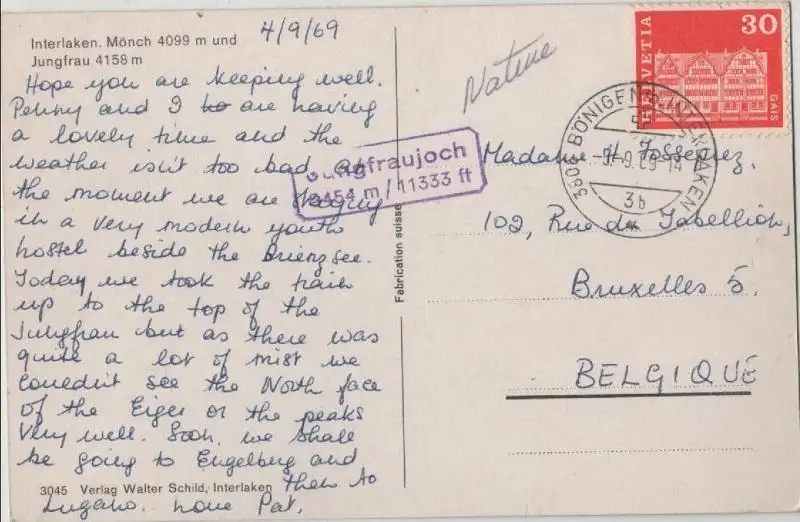 4/9/69
Interlaken. Mönch 4099 m und
Jungfrau 4158 m
Hope you are keeping well.
Penny and I are having
a lovely time and the
weather isn't too bad. At
the moment we are staying
in a very modern youth
hostel beside the Brienzsee.
Today we took the train
up to the top of the
Jungfrau but as there was
quite a lot of mist we
couldn't see the North face
of the Eiger or the peaks
very well. Soon, we shall
be going to Engelberg and
then to
Lugano. Love Pat.
3045 Verlag Walter Schild, Interlaken
Jungfraujoch
3454 m / 11333 ft
Fabrication suisse
Nature
HELVETIA
30
GAIS
BÖNIGEN B. INTERLAKEN
3b
Madame H.
102, Rue du
Bruxelles 5.
BELGIQUE